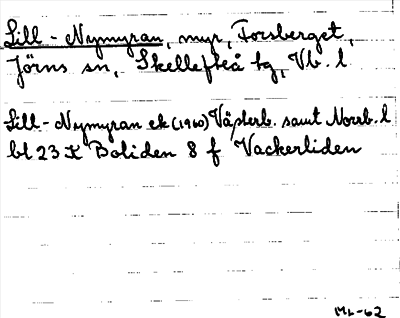 Lill-Nymyran, myr, Forsberget,
Jörns sn, Skellefteå tg, Vb. l
Lill-Nymyran ek (1960) Västerb. samt Norrb. l
bl 23 K Boliden 8 f Vackerliden
-62